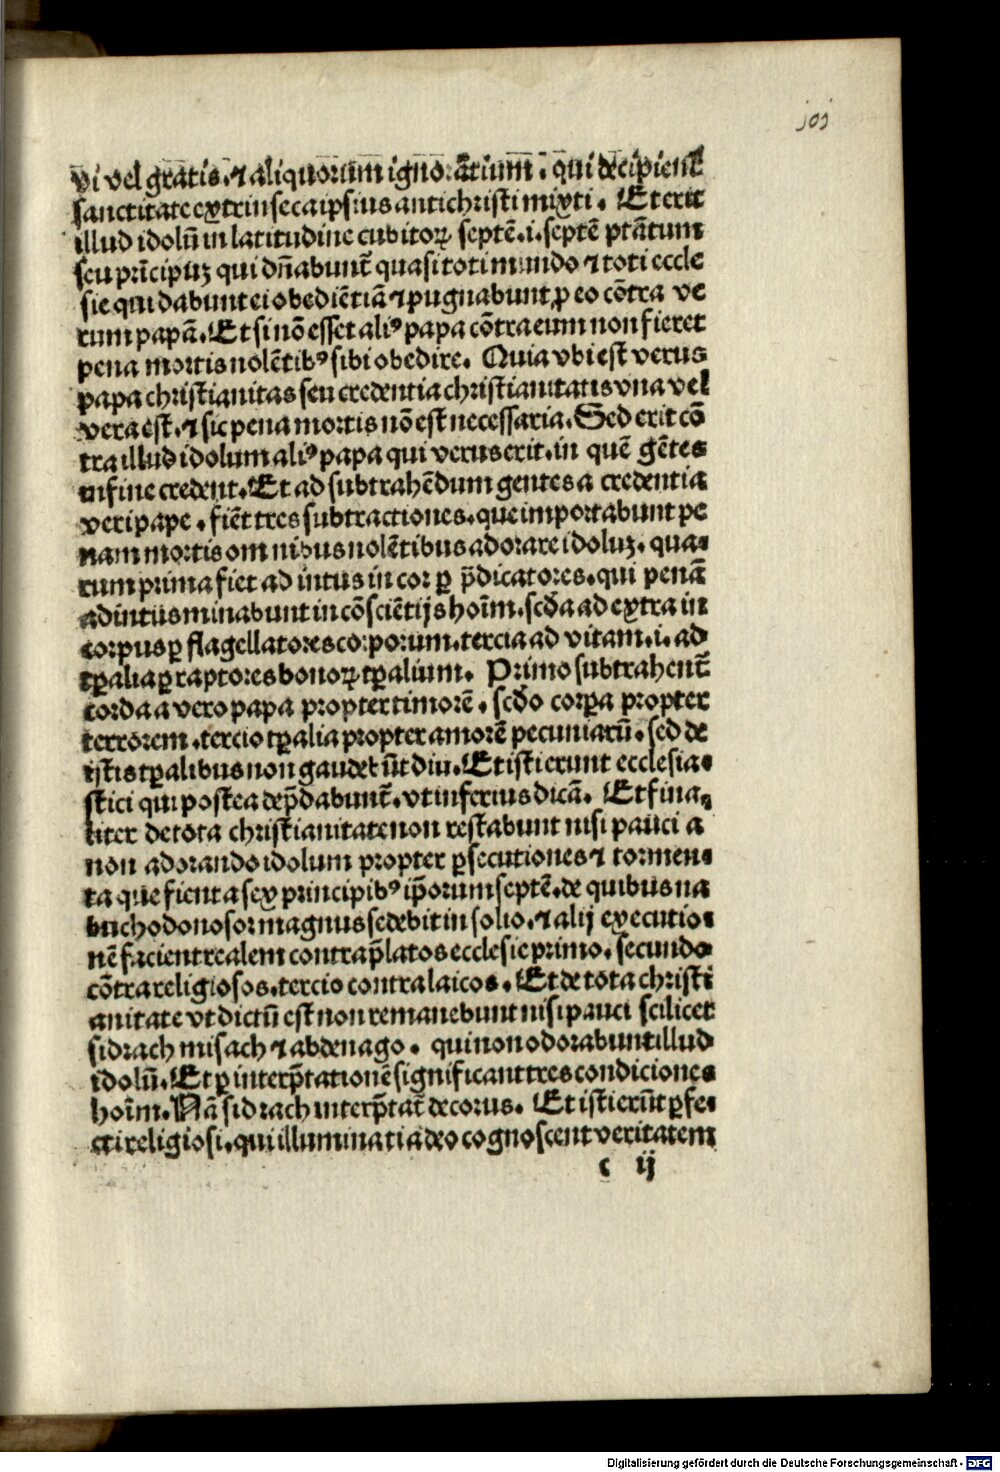 j0j
vi vel gratis. ⁊ aliquorum ignorātium. qui decipient̄
sanctitate extrinseca ipsius antichristi mixti. Et erit
illud idolū in latitudine cubitoꝝ septē .i. septē ptātum
seu prīcipuꝫ qui dn̄abunt̄ quasi toti mundo ⁊ toti eccle
sie qui dabunt ei obediētiā ⁊ pugnabunt ꝓ eo cōtra ve
rum papā. Et si nō esset aliꝰ papa cōtra eum non fieret
pena mortis nolētibꝰ sibi obedire. Quia vbi est verus
papa christianitas seu credentia christianitatis vna vel
vera est. ⁊ sic pena mortis nō est necessaria. Sed erit cō
tra illud idolum aliꝰ papa qui verus erit. in quē gētes
in fine credent. Et ad subtrahēdum gentes a credentia
veri pape. fiēt tres subtractiones. que importabunt pe
nam mortis omnibus nolētibus adorare idoluꝫ. qua⸗
rum prima fiet ad intus in cor ꝑ p̄dicatores. qui penā
ad intus minabunt in cōsciētijs hoīm. scd̄a ad extra in
corpus ꝑ flagellatores corporum. tercia ad vitam .i. ad
tꝑalia ꝑ raptores bonoꝝ tꝑalium. Primo subtrahent̄
corda a vero papa propter timorē. scd̄o corꝑa propter
terrorem. tercio tꝑalia propter amorē pecuniarū. sed de
istis tꝑalibus non gaudebūt diu. Et isti erunt ecclesia⸗
stici qui postea dep̄dabunt̄. vt inferius dicā. Et fina⸗
liter de tota christianitate non restabunt nisi pauci a
non adorando idolum propter ꝑsecutiones ⁊ tormen⸗
ta que fient a sex principibꝰ ip̄orum septē. de quibus na
buchodonosor magnus sedebit in solio. ⁊ alij executio⸗
nē facient realem contra p̄latos ecclesie primo. secundo
cōtra religiosos. tercio contra laicos. Et de tota christi
anitate vt dictū est non remanebunt nisi pauci scilicet
sidrach misach ⁊ abdenago. qui non odorabunt illud
idolū. Et ꝑ interp̄tationē significant tres condiciones
hoīm. Nā sidrach interp̄tat̄ decorus. Et isti erūt ꝑfe⸗
cti religiosi. qui illuminati a deo cognoscent veritatem
c ij
Digitalisierung gefördert durch die Deutsche Forschungsgemeinschaft - DFG